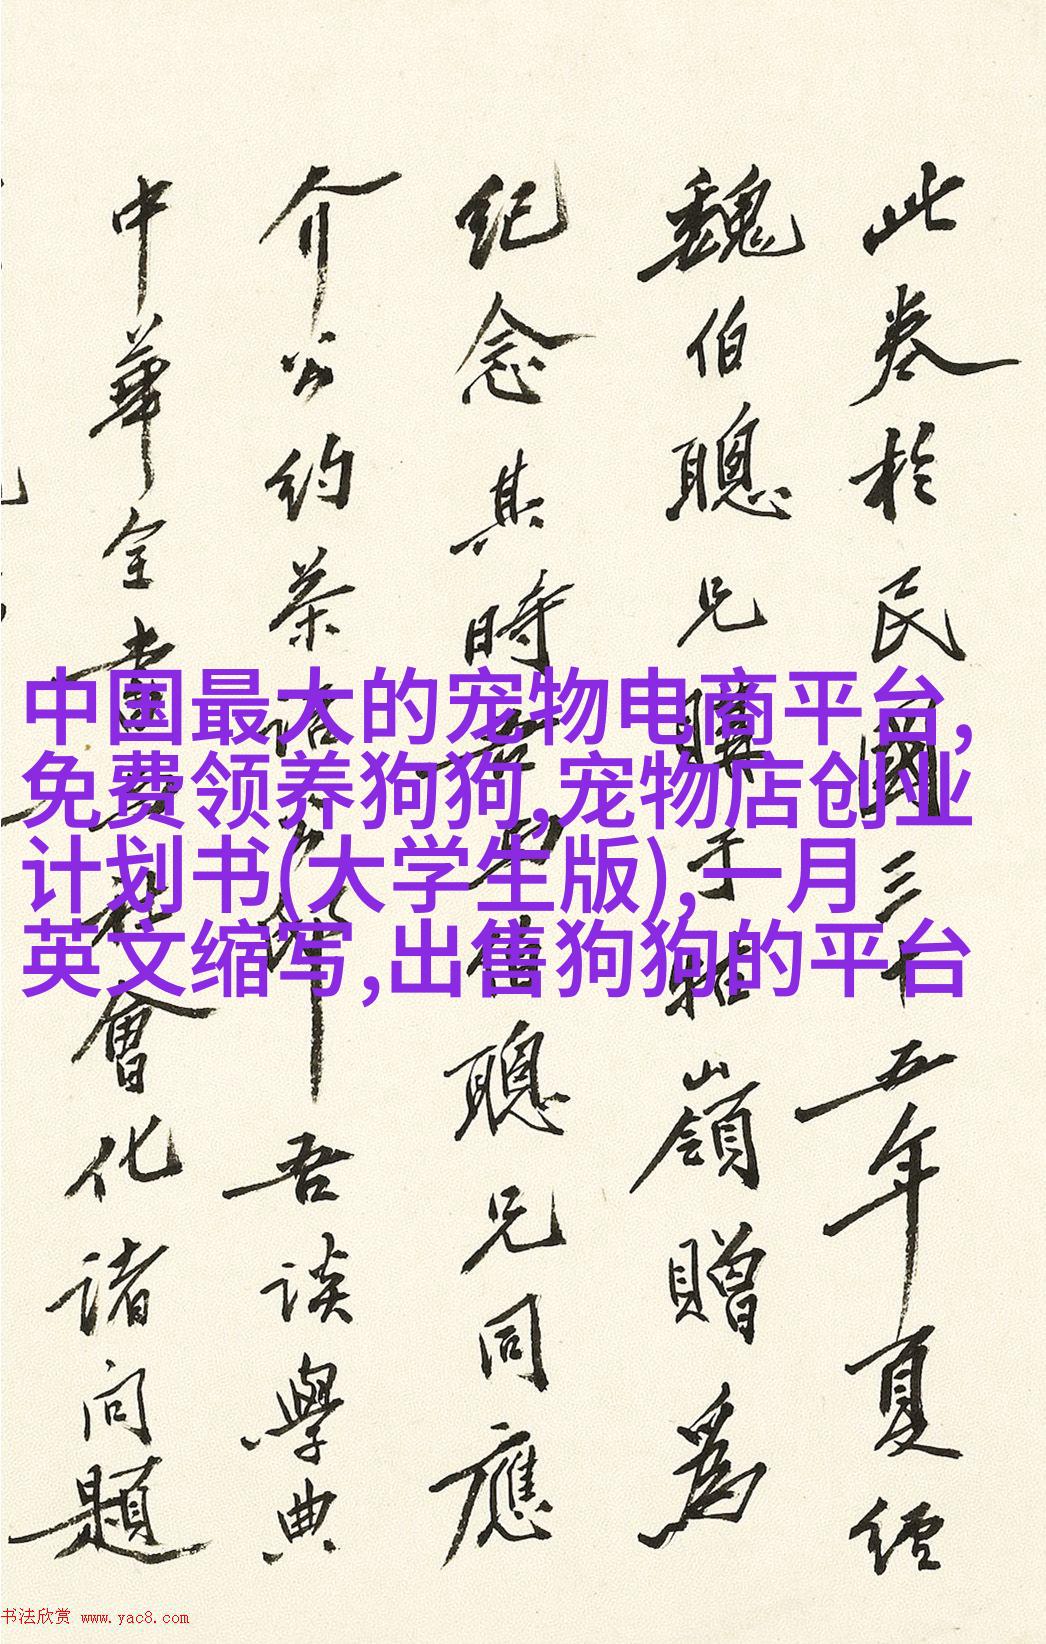 此卷於民國三十五年夏經
魏伯聰兄購于牯嶺贈為
紀念其時聰兄同應
介公約茶話吾談學典
中華全書會化諸問題
中国最大的宠物电商平台,
免费领养狗狗,宠物店创业
计划书(大学生版),一月
英文缩写,出售狗狗的平台
书法欣赏 www.yac8.com